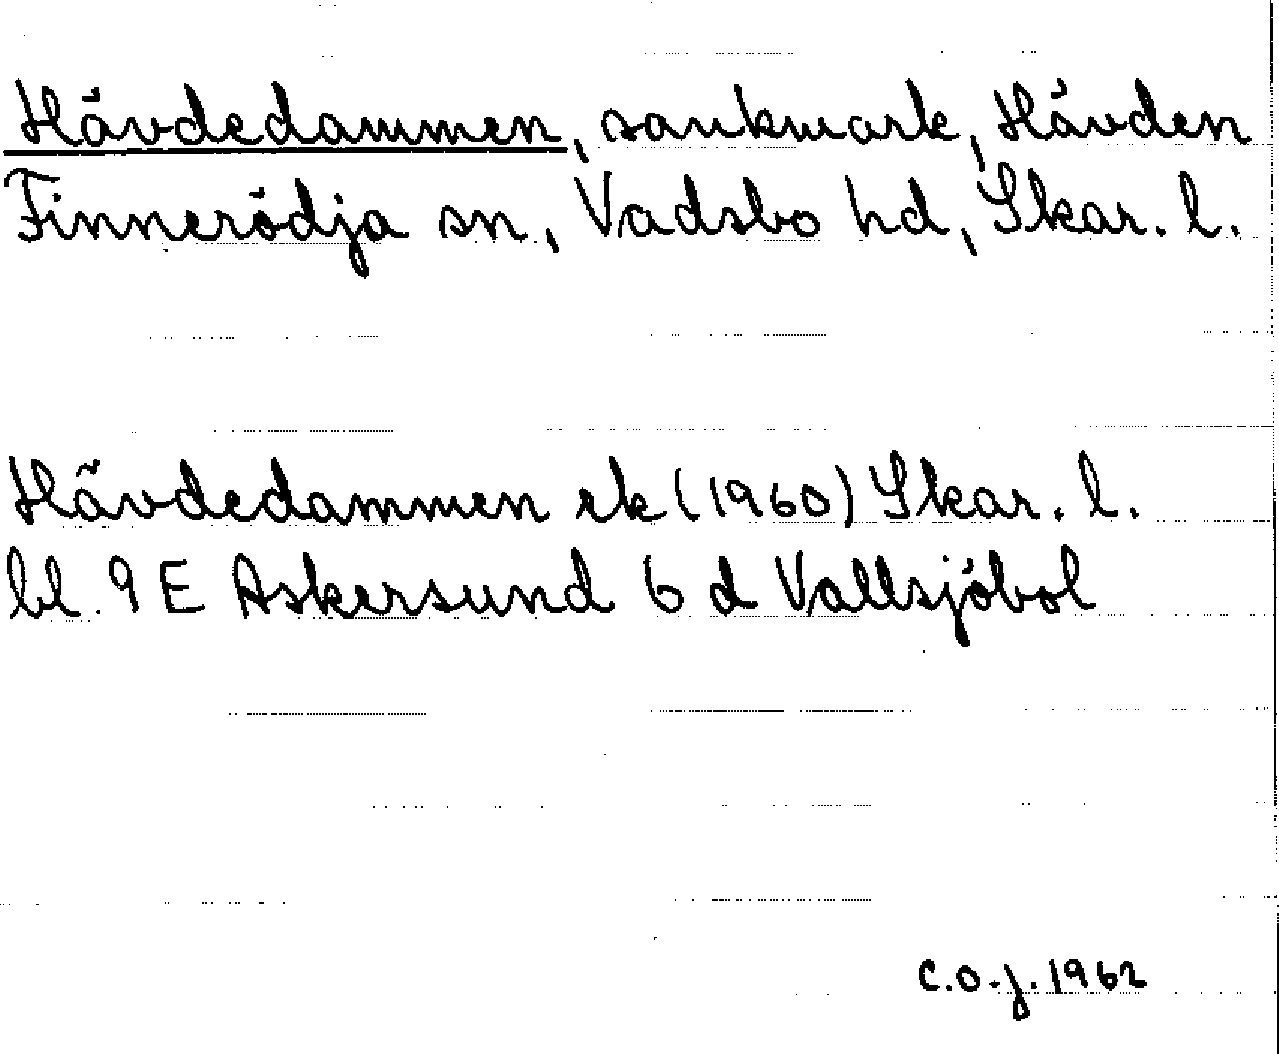 Hävdedammen, sankmark, Hävden
Finnerödja sn, Vadsbo hd, Skar. l.
Hävdedammen ek (1960) Skar. l.
bl. 9 E Askersund 6 d Vallsjöbol
C.O.J. 1962